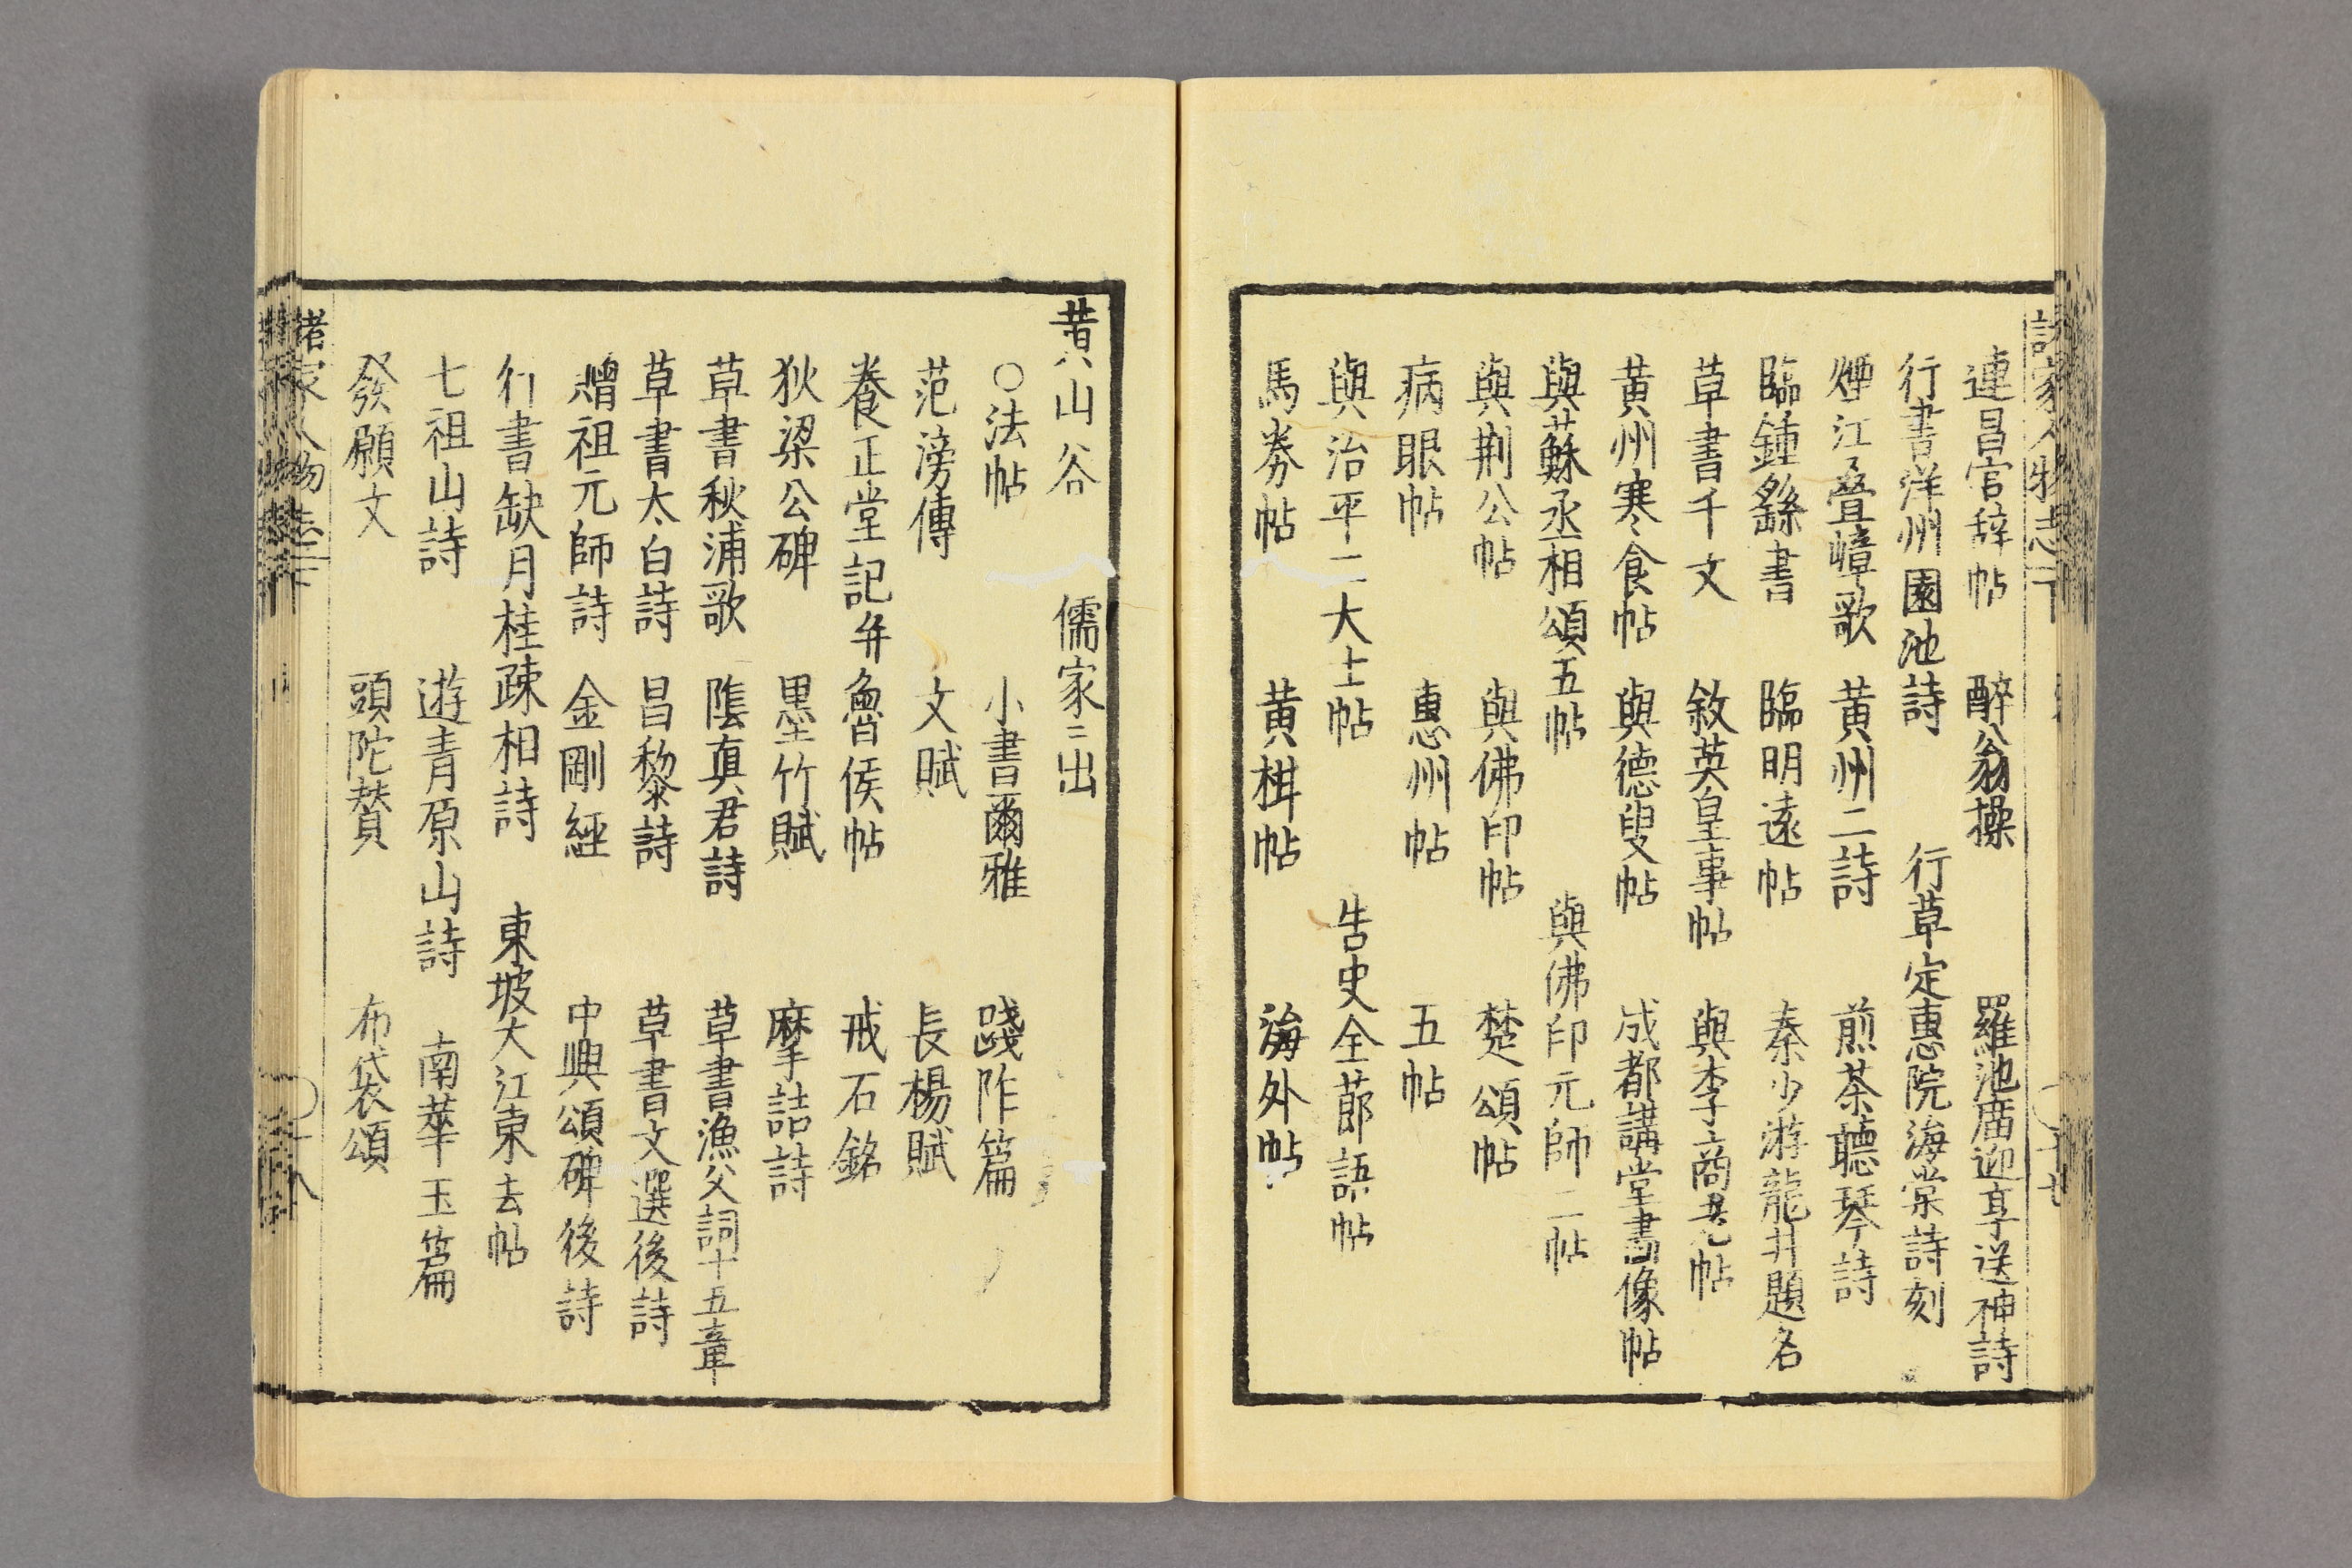 諸家人物志下
連昌宮辞帖 醉翁操 羅池庿迎享送神詩
行書洋州園池詩 行草定惠院海棠詩刻
煙江疊嶂歌 黄州二詩 煎茶聽琴詩
臨鍾繇書 臨明遠帖 秦少游龍井題名
草書千文 敘英皇事帖 與李商老帖
黄州寒食帖 與德叟帖 成都講堂畫像帖
與蘇丞相頌五帖 與佛印元師二帖
與荆公帖 與佛印帖 楚頌帖
病眼帖 惠州帖 五帖
與治平二大士帖 告史全節語帖
馬券帖 黄楫帖 海外帖
黄山谷 儒家ニ出
○法帖 小書爾雅 踐阼篇
范滂傳 文賦 長楊賦
養正堂記并魯侯帖 戒石銘
狄梁公碑 墨竹賦 摩詰詩
草書秋浦歌 陰真君詩 草書漁父詞十五章
草書太白詩 昌黎詩 草書文選後詩
贈祖元師詩 金剛經 中興頌碑後詩
行書缺月桂疎相詩 東坡大江東去帖
七祖山詩 遊青原山詩 南華玉篇
發願文 頭陀賛 布袋頌
諸家人物志下